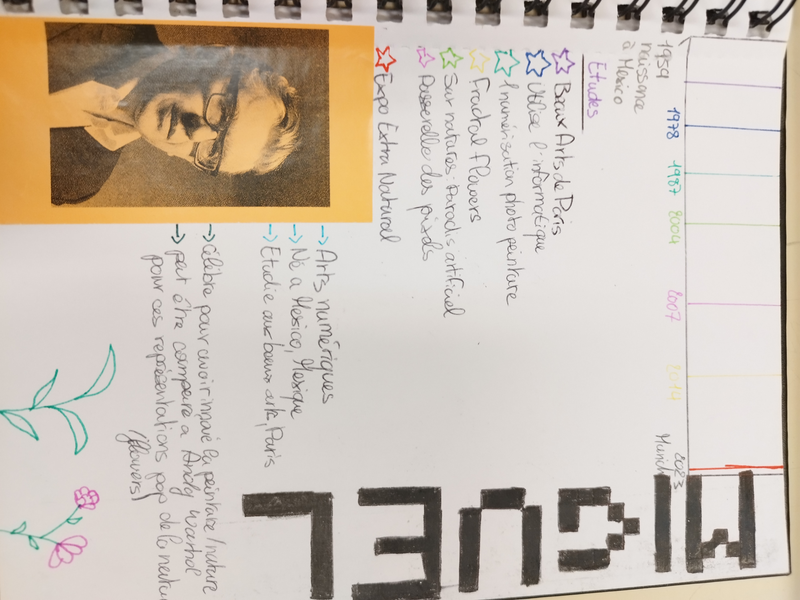 1959 1978 1987 2004 2007 2014 2023
naissance
à Mexico
Munich
MIGUEL
Etudes
Beaux Arts de Paris
Utilise l'informatique
1 numérisation photo peinture
Fractal flowers
Sur natures: Paradis artificiel
Passerelle des pixels
Expo Extra Natural
→ Arts numériques
→ Né à Mexico, Mexique
→ Etudie aux beaux arts, Paris
→ Célèbre pour avoir la peinture/nature
→ peut être comparé a Andy Warhol
pour ces représentations pop de la
(flowers)